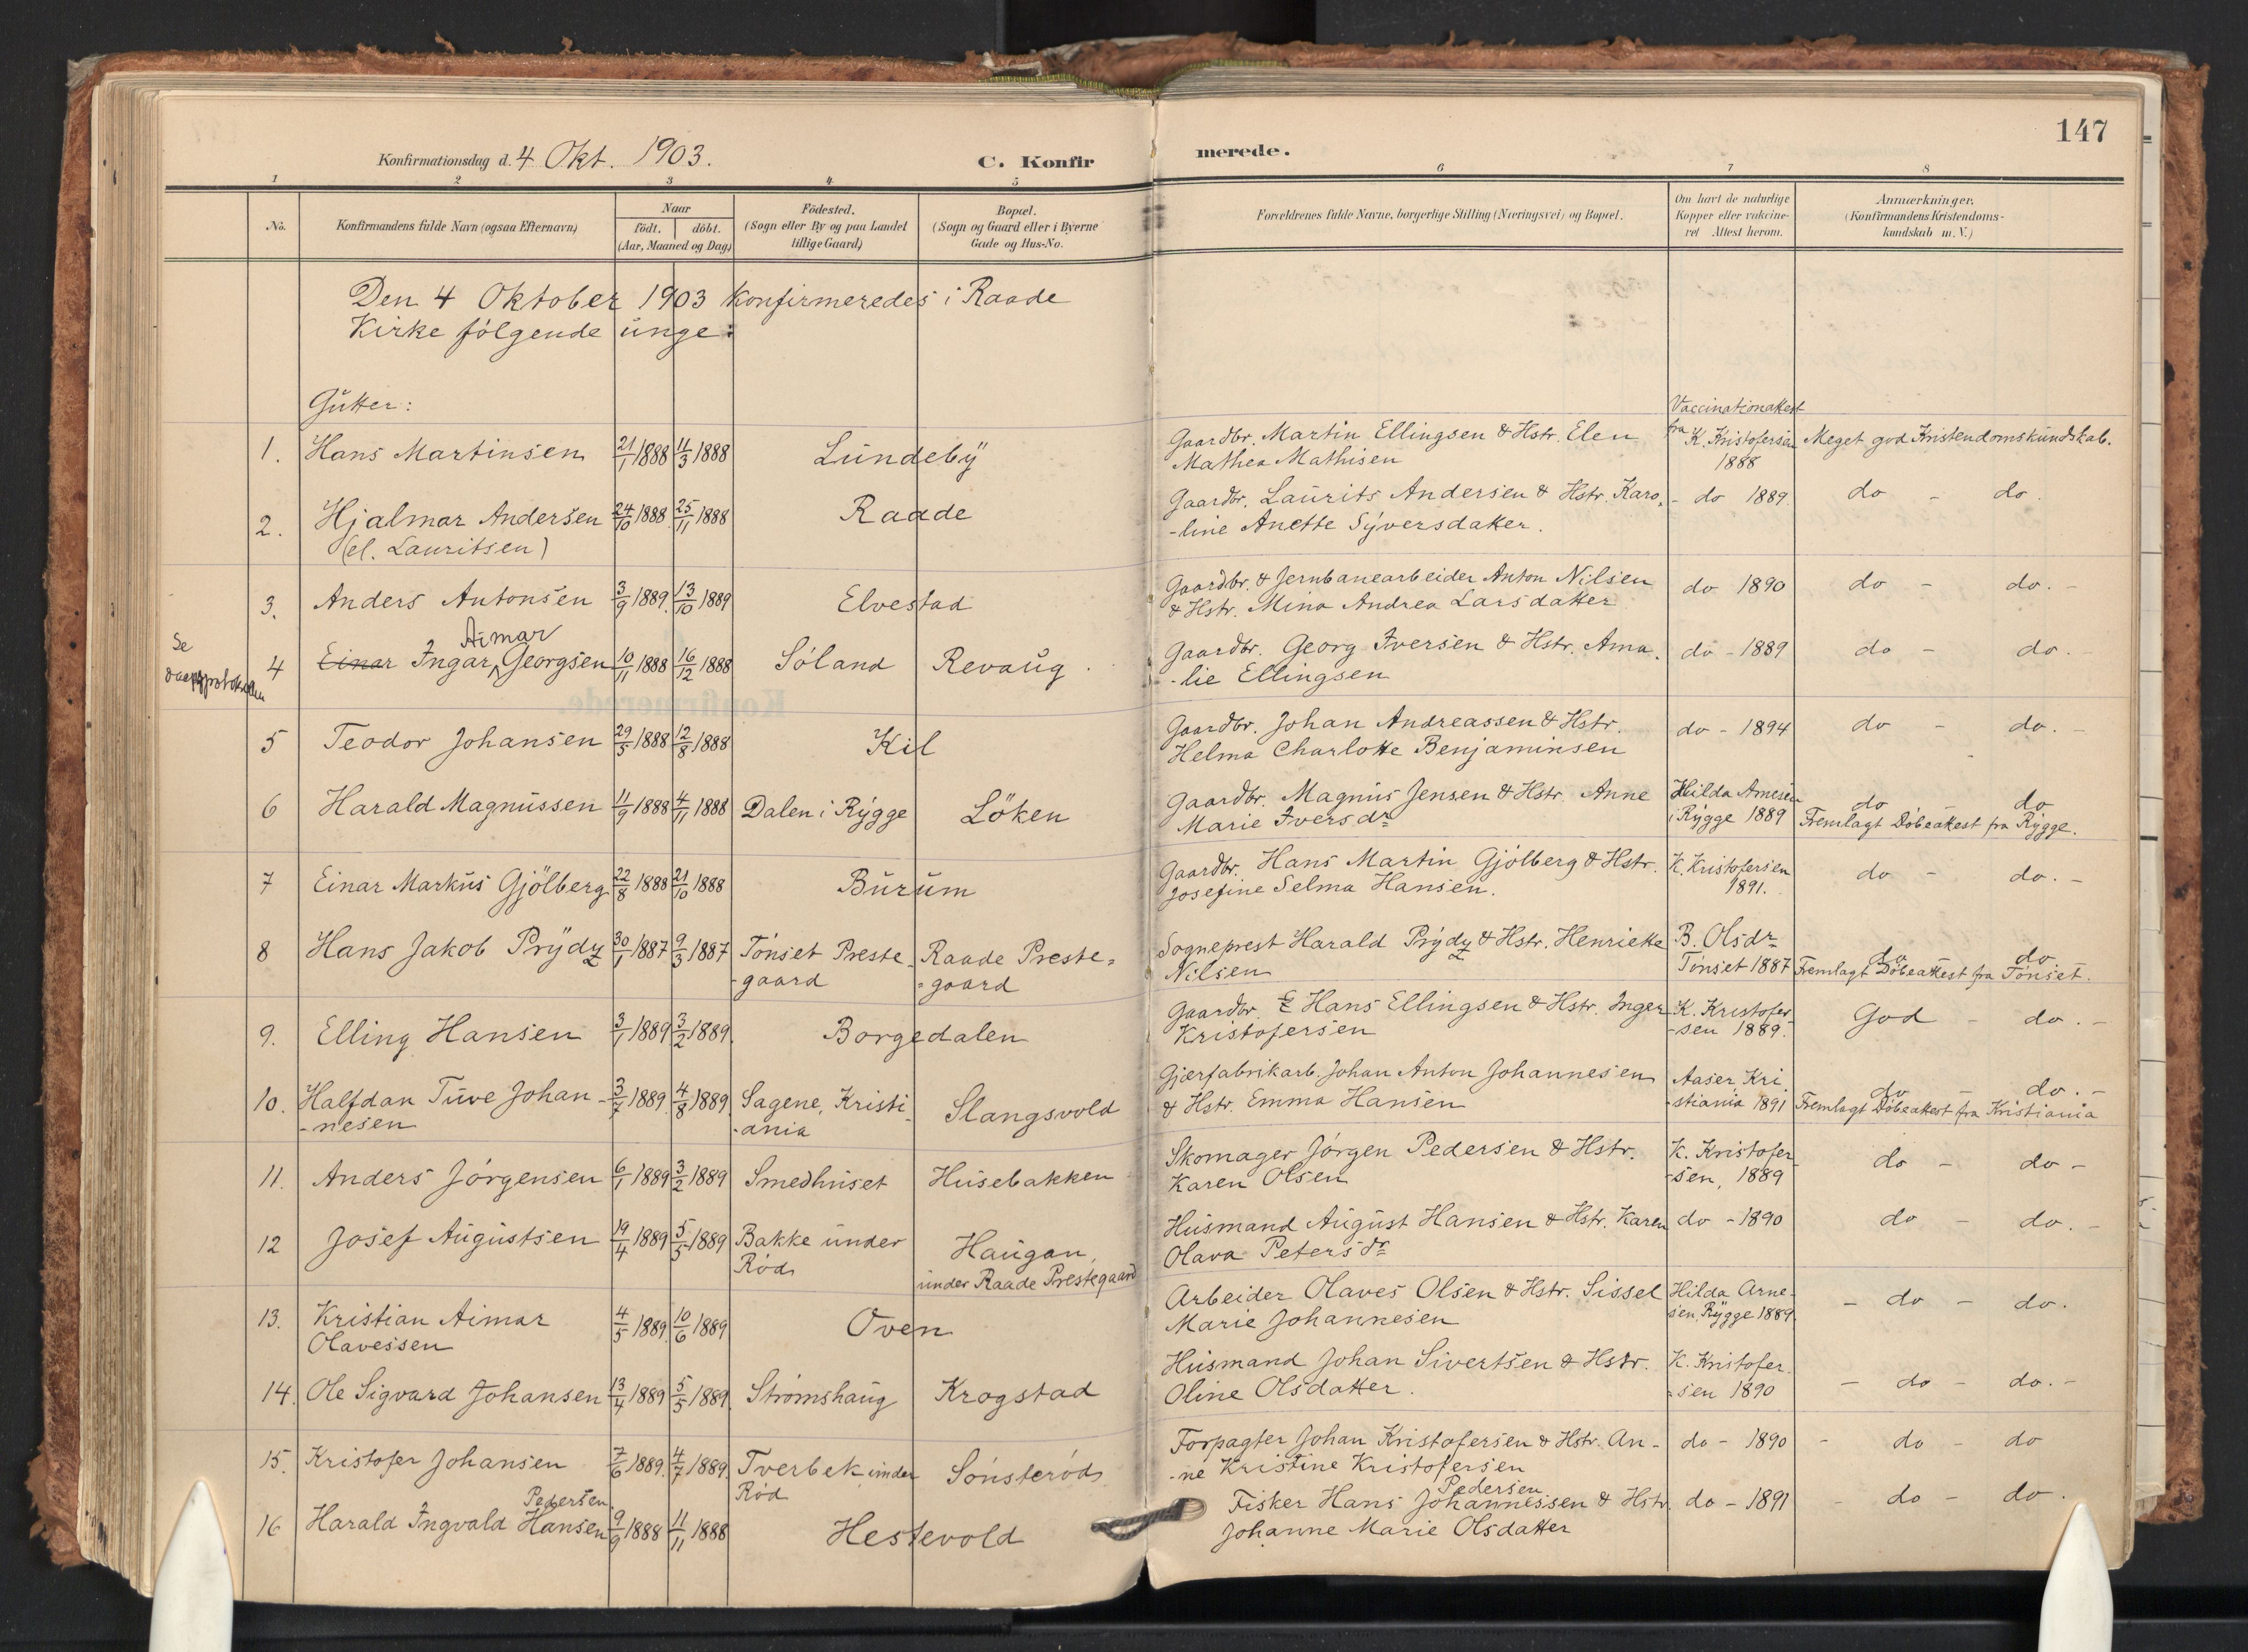 147
Konfirmationsdag d. 4 Okt. 1903. C. Konfir merede.
1 2 3 4 5 6 7 8
No. Konfirmandens fulde Navn (ogsaa Efternavn)
Naar
födt. döbt.
(Aar, Maaned og Dag)
Födested.
(Sogn eller By og paa Landet
tillige Gaard)
Bopæl.
(Sogn og Gaard eller i Byerne
Gade og Hus-No.
Forældrenes fulde Navne, borgerlige Stilling (Næringsvei) og Bopæl.
Om havt de naturlige
Kopper eller vakcine-
ret Attest herom.
Anmærkninger.
(Konfirmandens Kristendoms-
kundskab m. V.)
Den 4 Oktober 1903 konfirmeredes i Raade
Kirke følgende unge:
Gutter:
Vaccinationattest
1. Hans Martinsen 21/1 1888 11/3 1888 Lundeby Gaardbr. Martin Ellingsen & Hstr. Elen fra K. Kristofersen Meget god Kristendomskundskab.
Mathea Mathisen 1888
2. Hjalmar Andersen 24/10 1888 25/11 1888 Raade Gaardbr. Laurits Andersen & Hstr. Karo- - do 1889 do - do.
(el. Lauritsen) -line Anette Syversdatter.
3. Anders Antonsen 3/9 1889. 13/10 1889 Elvestad Gaardbr. & Jernbanearbeider Anton Nilsen do 1890 do - do. -
& Hstr. Mina Andrea Larsdatter
Se Aimar
4 Einar Ingar Georgsen 10/11 1888 16/12 1888 Søland Revaug. Gaardbr. Georg Iversen & Hstr. Ama- do - 1889 do - do.
-lie Ellingsen
5 Teodor Johansen 29/5 1888 12/8 1888 Kil Gaardbr. Johan Andreassen & Hstr. do - 1894 do - do. -
Helma Charlotte Benjaminsen
6 Harald Magnussen 11/9 1888 4/11 1888 Dalen i Rygge Löken Gaardbr. Magnus Jensen & Hstr. Anne Hilda Arnesen do - do
Marie Iversdr i Rygge 1889 Fremlagt Døbeattest fra Rygge.
7 Einar Markus Gjölberg 22/8 1888 21/10 1888 Burum Gaardbr. Hans Martin Gjølberg & Hstr. K. Kristofersen do - do. -
Josefine Selma Hansen. 1891.
8 Hans Jakob Prydz 30/1 1887 9/3 1887 Tønset Preste- Raade Preste- Sogneprest Harald Prydz & Hstr. Henriette B. Olsdr do do
-gaard -gaard Nilsen Tønset 1887 Fremlagt Døbeattest fra Tønset.
9. Elling Hansen 3/1 1889 3/2 1889. Borgedalen Gaardbr. E Hans Ellingsen & Hstr. Inger K. Kristofer- God - do. -
Kristofersen -sen 1889.
10. Halfdan Tuve Johan- 3/7 1889. 4/8 1889 Sagene, Kristi- Slangsvold Gjærfabrikarb. Johan Anton Johannesen Aaser Kri- do - do. -
-nesen -ania & Hstr. Emma Hansen -stiania 1891 Fremlagt Døbeattest fra Kristiania
11. Anders Jörgensen 6/1 1889 3/2 1889 Smedhuset Husebakken Skomager Jörgen Pedersen & Hstr. K. Kristofer- do - do -
Karen Olsen -sen, 1889
12 Josef Augustsen 19/4 1889 5/5 1889 Bakke under Haugan, Husmand August Hansen & Hstr. Karen do - 1890 do - do. -
Rød under Raade Prestegaard Olava Petersdr
13. Kristian Aimar 4/5 1889. 10/6 1889 Oven Arbeider Olaves Olsen & Hstr. Sissel Hilda Arne- - do - do.
Olavessen Marie Johannesen sen, Rygge 1889.
14. Ole Sigvard Johansen 13/4 1889 5/5 1889. Strømshaug Krogstad Husmand Johan Sivertsen & Hstr. K. Kristofer- - do - do. -
Oline Olsdatter. -sen 1890
15. Kristofer Johansen 7/6 1889. 4/7 1889. Tverbek under Sønsterød Forpagter Johan Kristofersen & Hstr. An- do - 1890 - do - do
Rød -ne Kristine Kristofersen
Pedersen Pedersen
16 Harald Ingvald Hansen 9/9 1888 11/11 1888 Hestevold Fisker Hans Johannessen & Hstr. do - 1891 - do - do.
Johanne Marie Olsdatter